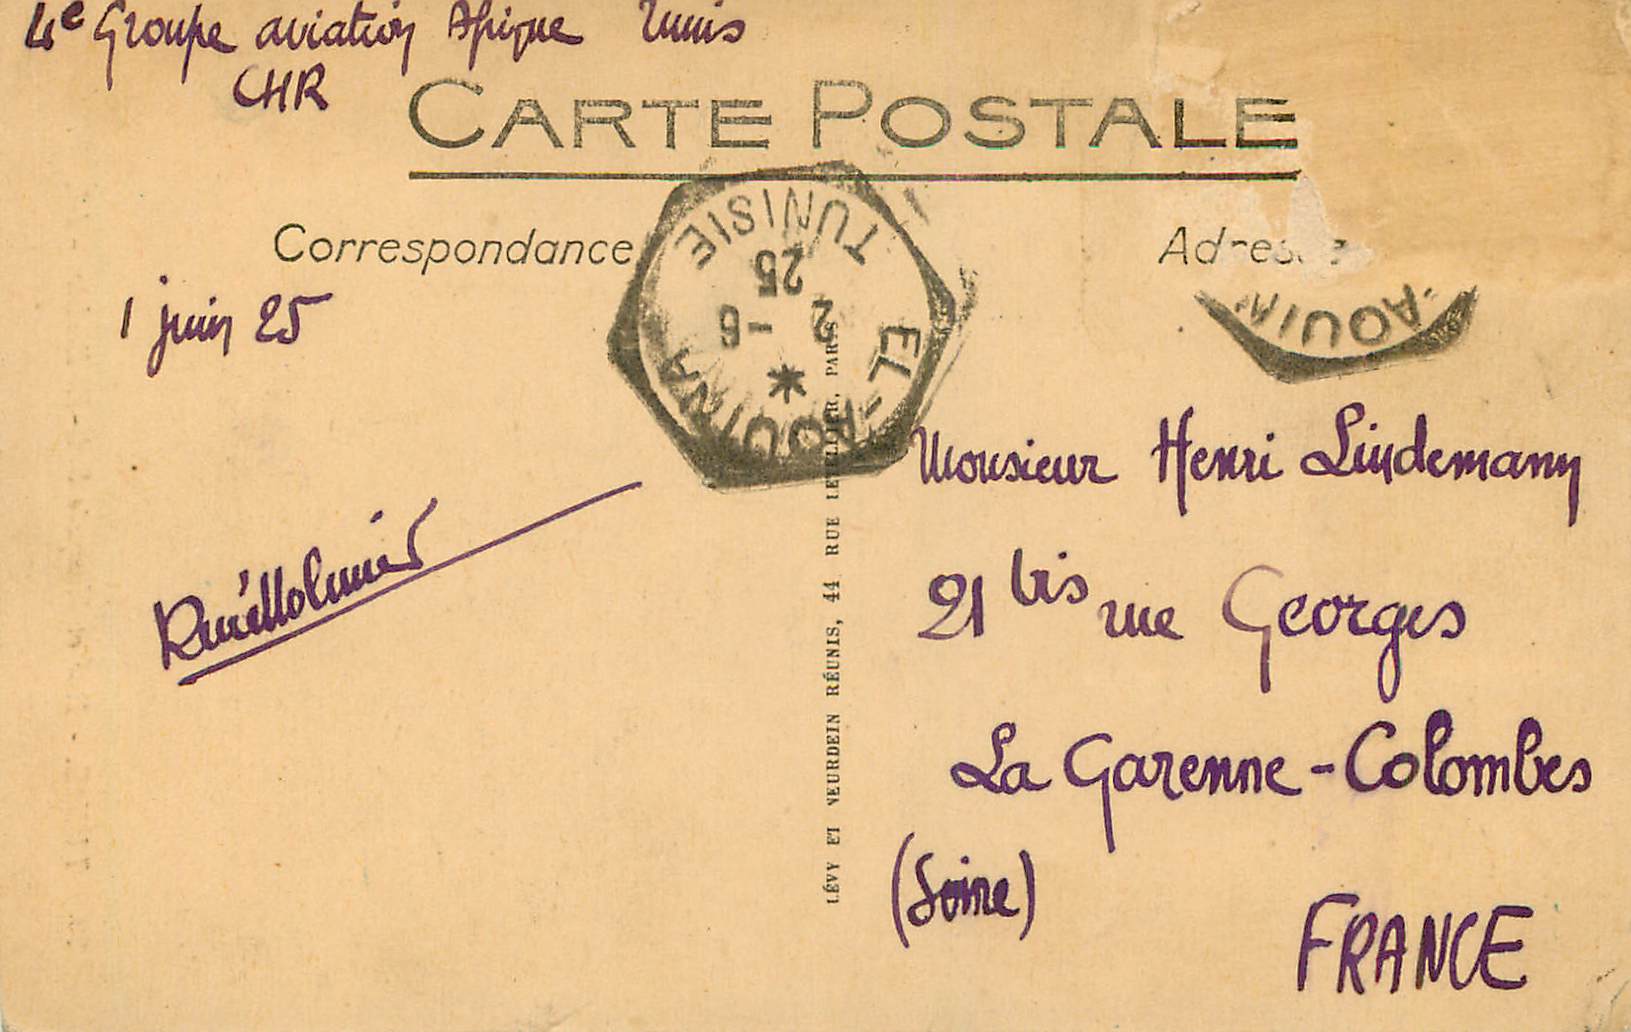 4e Groupe aviation Afrique Tunis
CHR
CARTE POSTALE
Correspondance
Adresse
1 juin 25
TUNISIE
25
2 - 6
*
EL-AOUINA
-AOUIN
Monsieur Henri Lindemann
21 bis rue Georges
La Garenne-Colombes
(Seine)
FRANCE
LÉVY ET NEURDEIN RÉUNIS, 44 RUE LETELLIER, PARIS